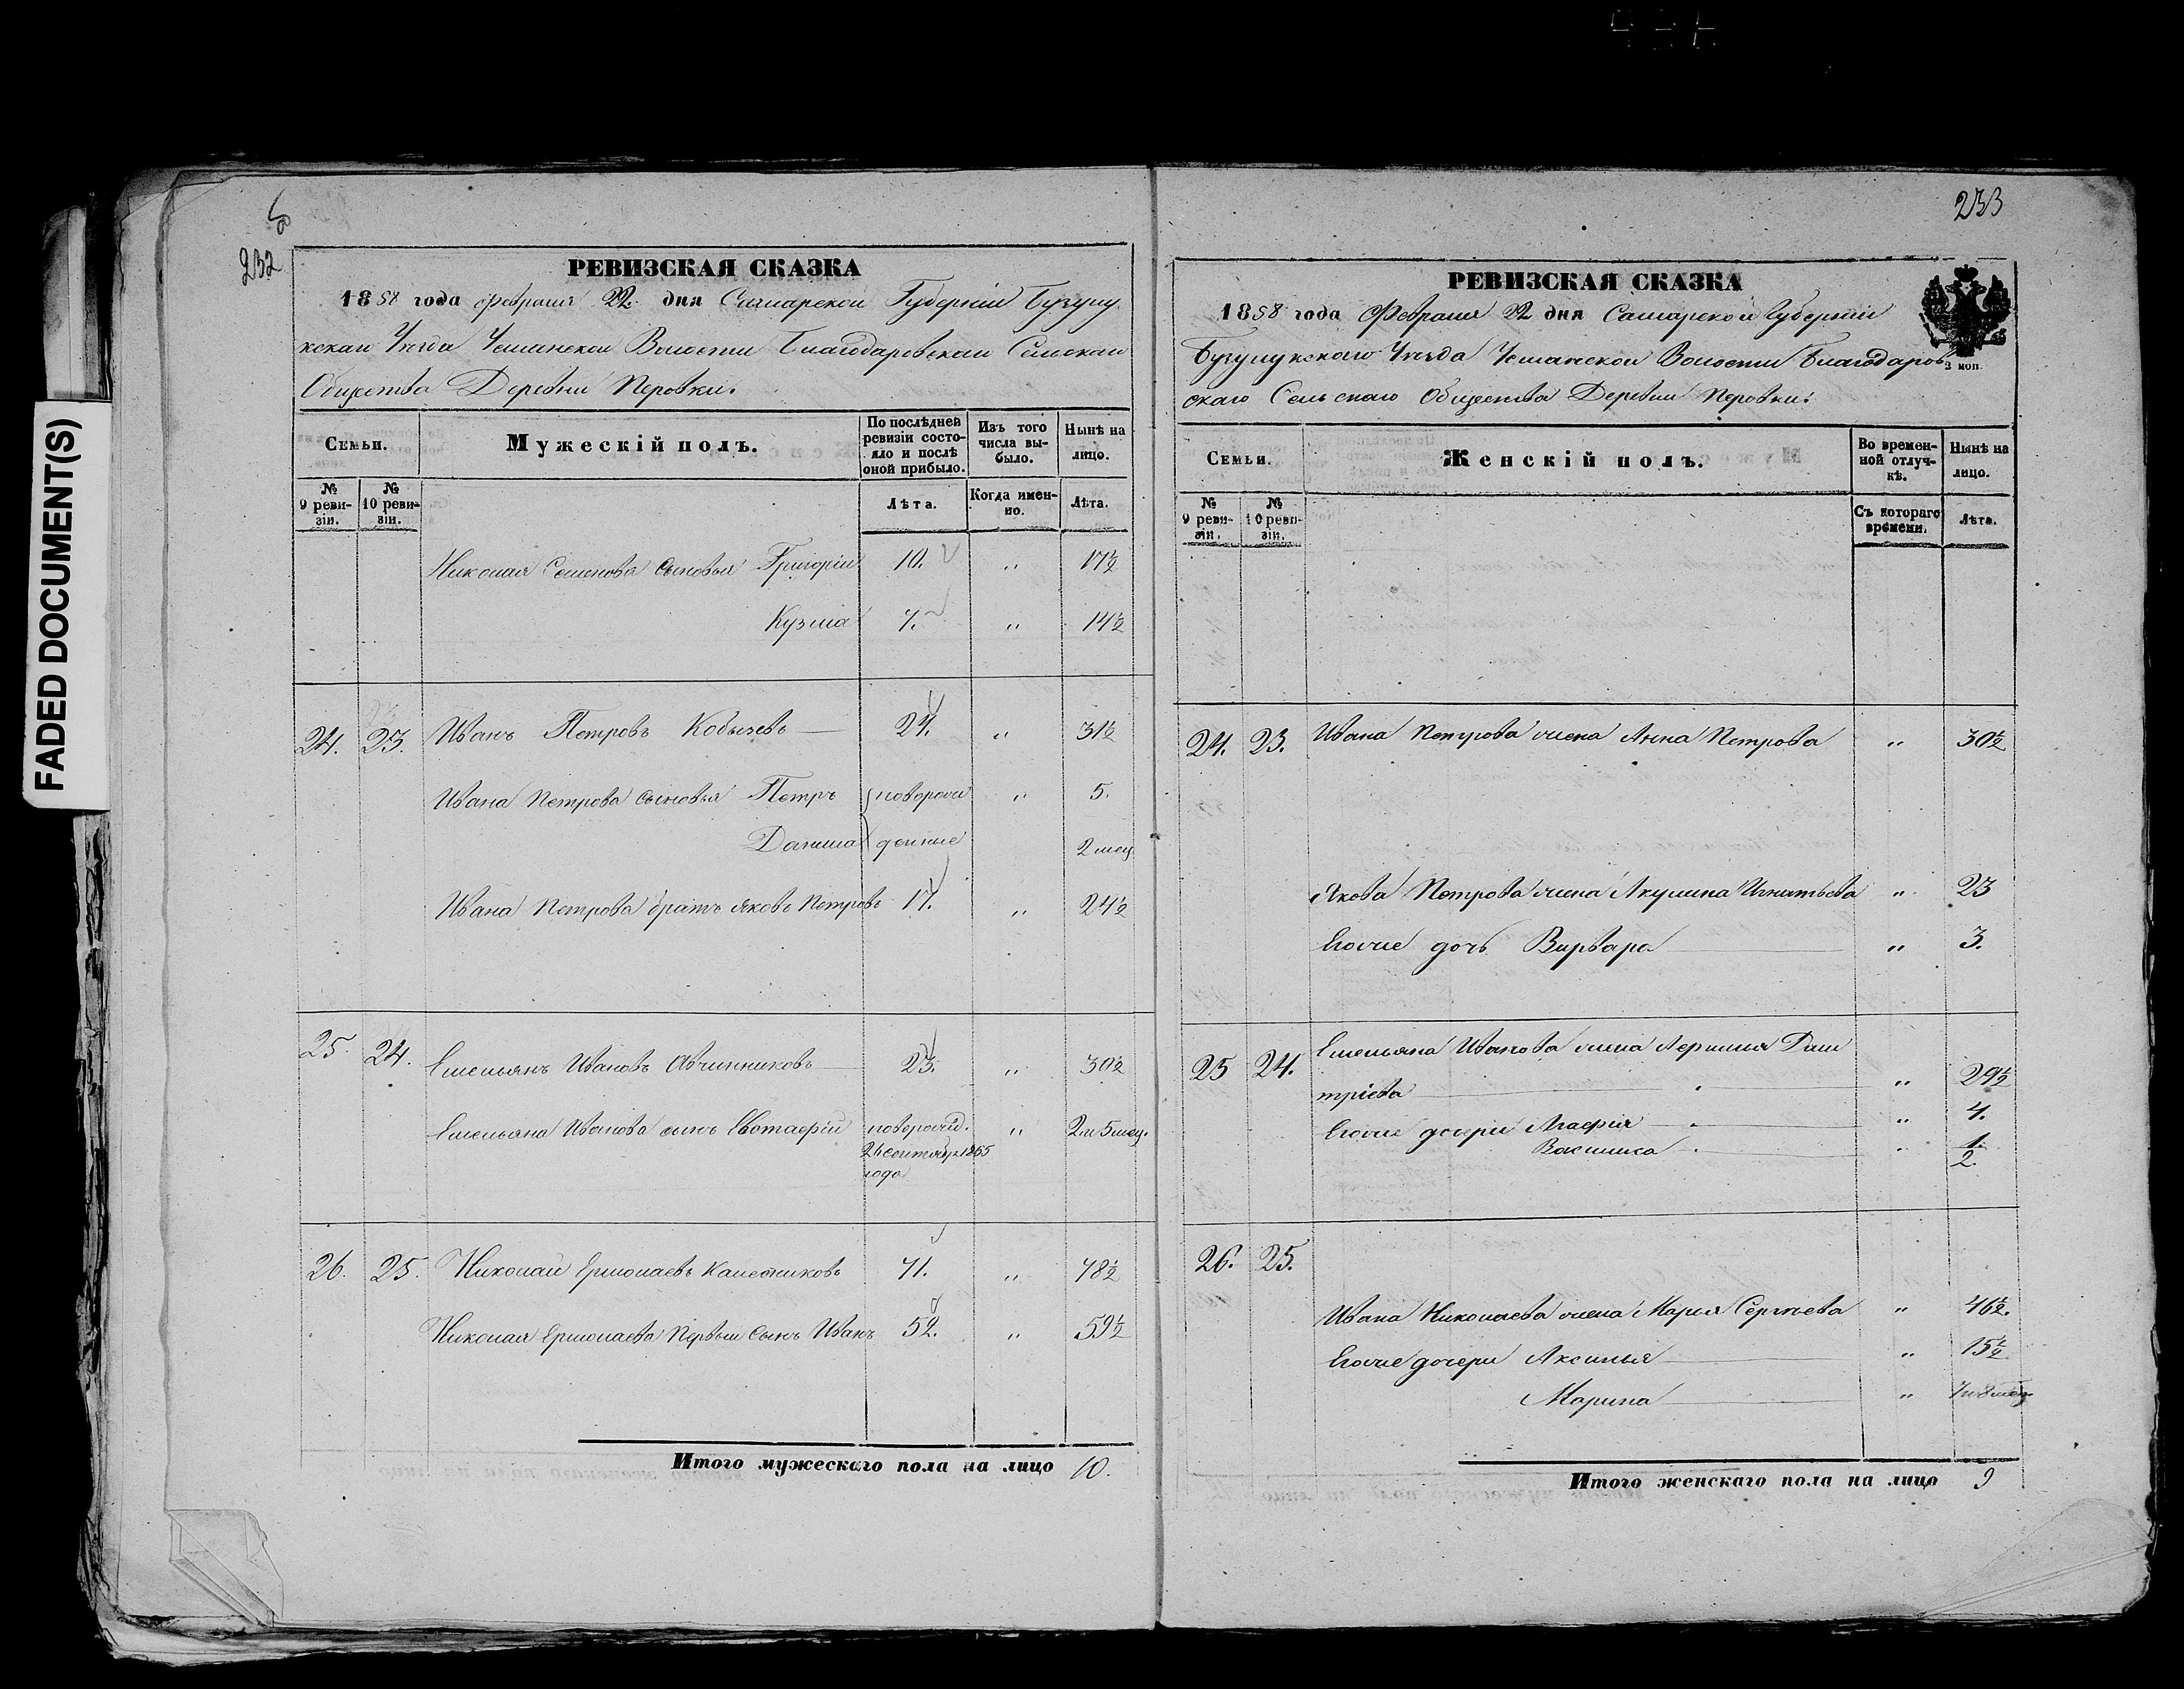 FADED DOCUMENT(S)
232
РЕВИЗСКАЯ СКАЗКА
1858 года Февраля 22 дня Самарской Губерніи Бугуру
Уѣзда Волости Благодаровскаго Сельскаго
Общества Деревни Перовки.
Семьи.
Мужескій полъ.
По послѣдней ревизіи состояло и послѣ оной прибыло.
Изъ того числа выбыло.
Нынѣ на лицо.
№ 9 ревизіи.
№ 10 ревизіи.
Лѣта.
Когда именно.
Лѣта.
Николая Семенова сыновья Григорій 10. " 17½
Кузма 7. " 14½
24. 23. Иванъ Петровъ 24. " 31½
Ивана Петрова сыновья Петръ новорож " 5.
Данила денные 2 мец
Ивана Петрова братъ Яковъ Петровъ 17. " 24½
25. 24. Емельянъ Ивановъ Овчинниковъ 23. " 30½
Емельяна Иванова сынъ новорожд. " 2 и 5 мец.
26 Сентябр 1855
года
26. 25. Николай Ермолаевъ 71. " 78½
Николая Ермолаева Первый Сынъ Иванъ 52. " 59½
Итого мужескаго пола на лицо 10.
233
РЕВИЗСКАЯ СКАЗКА
1858 года Февраля 22 дня Самарской Губерніи
Уѣзда Волости Благодаров
скаго Сельскаго Общества Деревни Перовки.
3 коп.
Семьи.
Женскій полъ.
Во временной отлучкѣ.
Нынѣ на лицо.
№ 9 ревизіи.
№ 10 ревизіи.
Съ котораго времени.
Лѣта.
24. 23. Ивана Петрова жена Анна Петрова " 30½
Якова Петрова жена Акулина Игнатьева " 23
Егоже дочь Варвара " 3.
25 24. Емельяна Иванова жена Дми
тріева " 29½
Егоже дочери Агафія " 4.
Василиса " ½
26. 25.
Ивана Николаева жена Марья Сергѣева " 46½.
Егоже дочери Аксинья " 15½
Марина " 7 и 8 мец
Итого женскаго пола на лицо 9